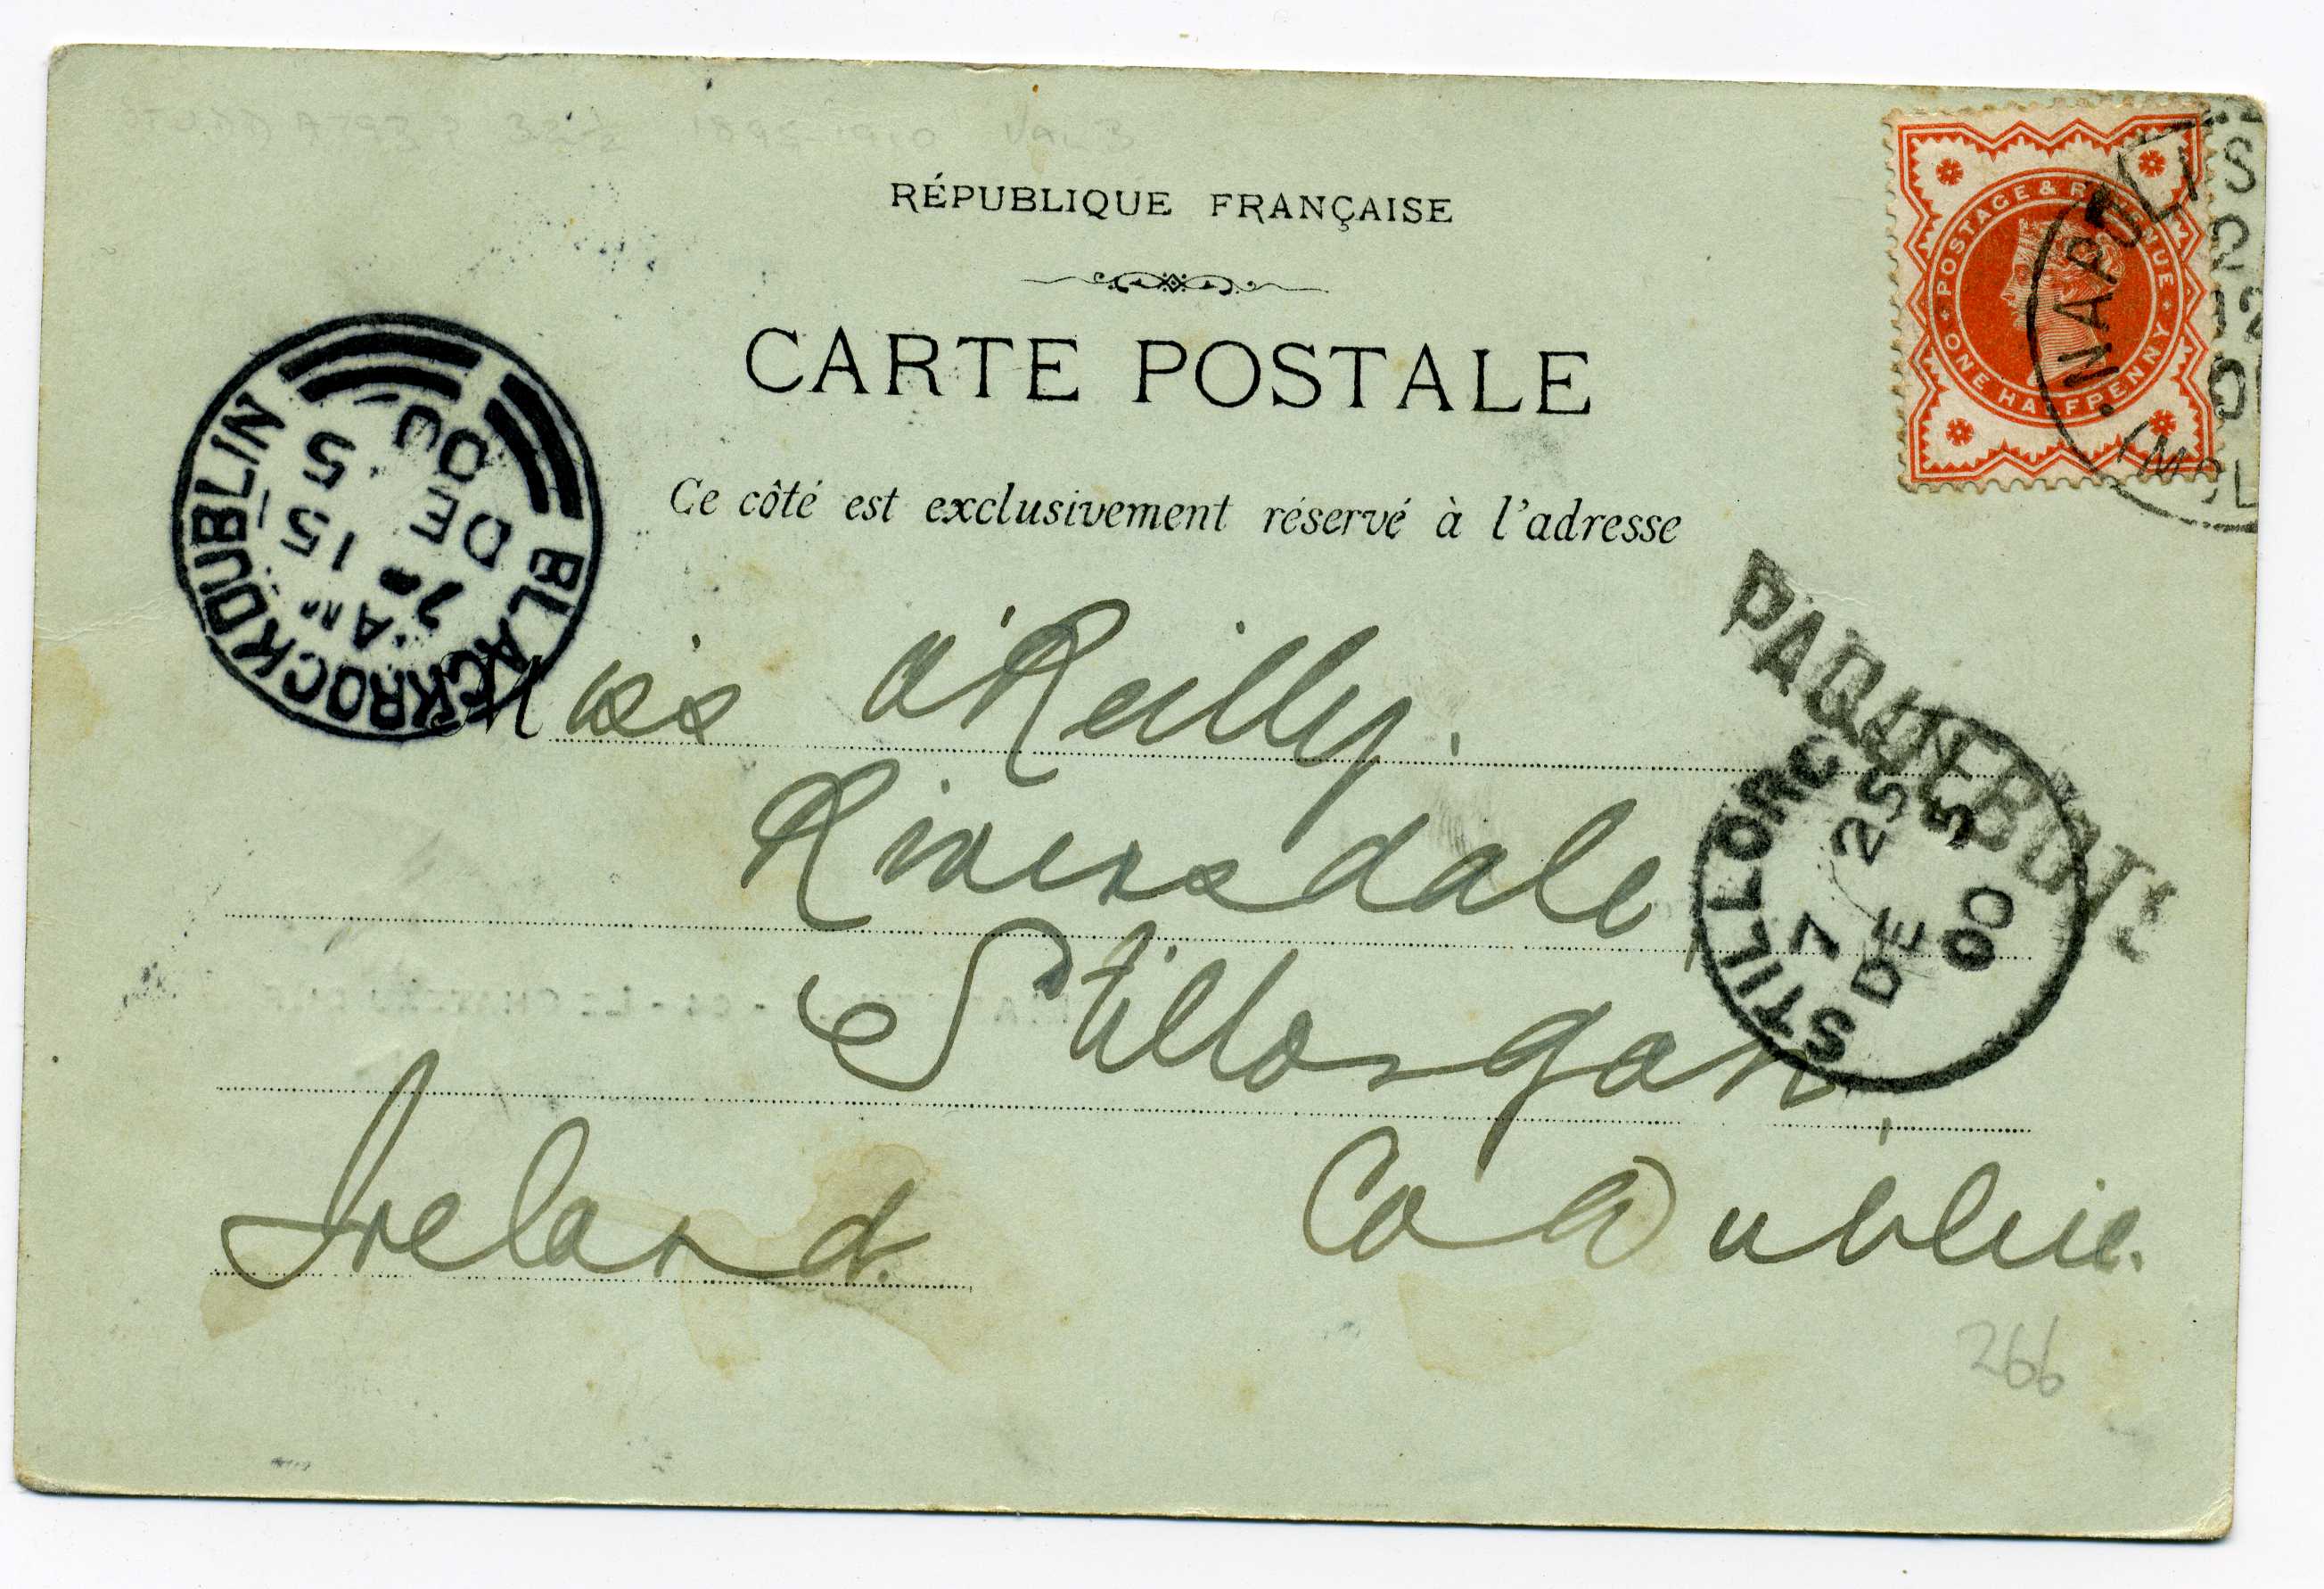 32½ 1895-1910 Val 3
RÉPUBLIQUE FRANÇAISE
CARTE POSTALE
Ce côté est exclusivement réservé à l'adresse
POSTAGE & REVENUE
ONE HALFPENNY
NAPOLI
BLACKROCK DUBLIN
5 15 AM
7 DE 00
PAQUEBOT
STILLORG
5 25
7 DE 00
Miss O'Reilly.
Riversdale,
Stillorgan,
Co Dublin.
Ireland.
266